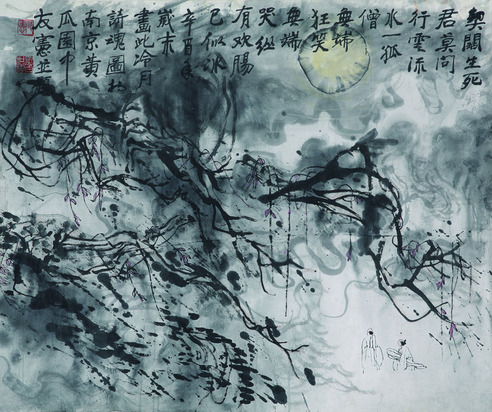 契闊生死
君莫问
行雲流
水一孤
僧
無端
狂笑
無端
哭縱
有欢腸
已似冰
辛酉
歲末
畫此冷月
詩魂圖於
南京黄
瓜園中
友憲並